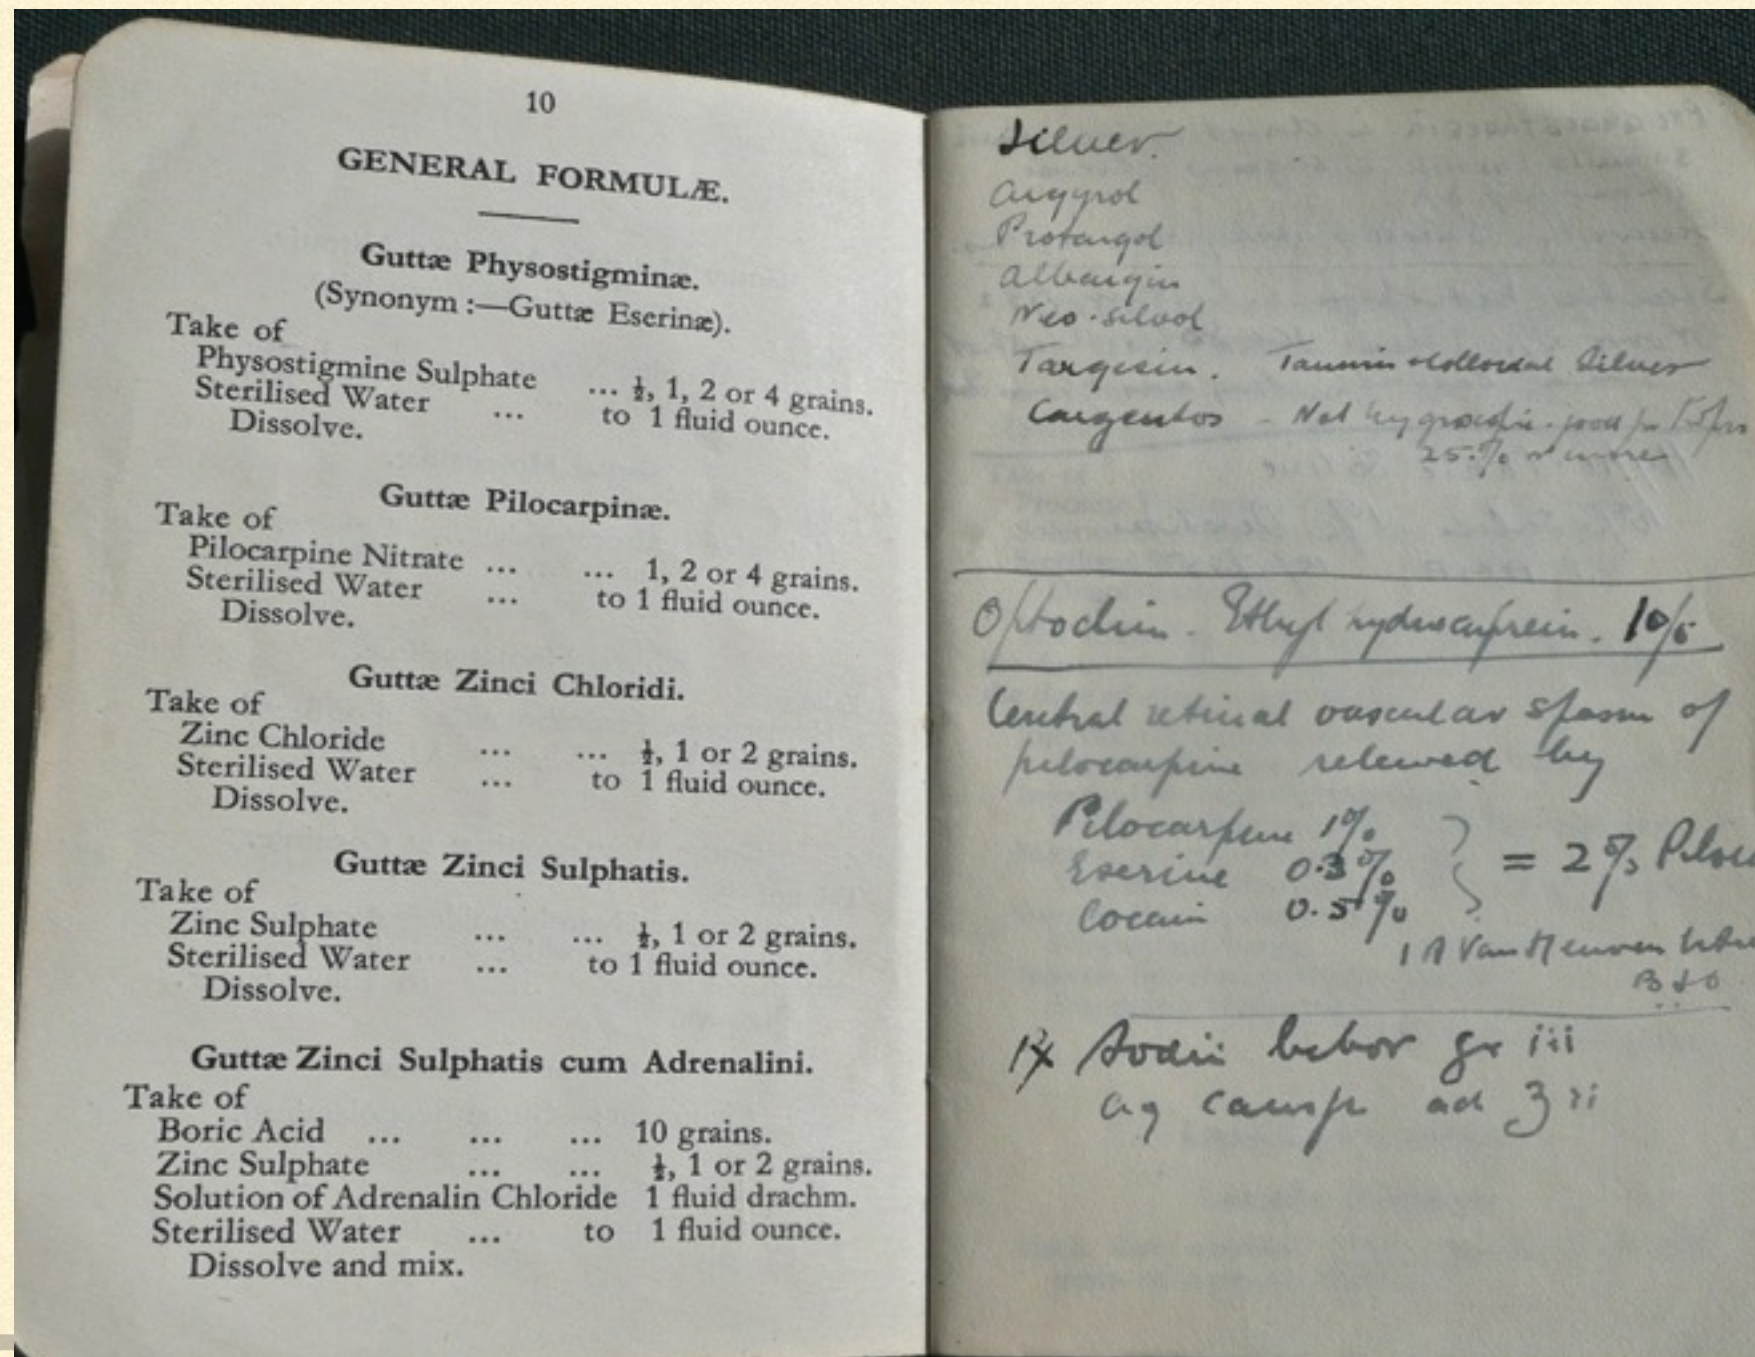 10
GENERAL FORMULÆ.
Guttæ Physostigminæ.
(Synonym :—Guttæ Eserinæ).
Take of
Physostigmine Sulphate ... ½, 1, 2 or 4 grains.
Sterilised Water ... to 1 fluid ounce.
Dissolve.
Guttæ Pilocarpinæ.
Take of
Pilocarpine Nitrate ... ... 1, 2 or 4 grains.
Sterilised Water ... to 1 fluid ounce.
Dissolve.
Guttæ Zinci Chloridi.
Take of
Zinc Chloride ... ... ½, 1 or 2 grains.
Sterilised Water ... to 1 fluid ounce.
Dissolve.
Guttæ Zinci Sulphatis.
Take of
Zinc Sulphate ... ... ½, 1 or 2 grains.
Sterilised Water ... to 1 fluid ounce.
Dissolve.
Guttæ Zinci Sulphatis cum Adrenalini.
Take of
Boric Acid ... ... ... 10 grains.
Zinc Sulphate ... ... ½, 1 or 2 grains.
Solution of Adrenalin Chloride 1 fluid drachm.
Sterilised Water ... to 1 fluid ounce.
Dissolve and mix.
Silver.
Argyrol
Protargol
Albargin
Neo-silvol
Targesin. Tannin colloidal Silver
Cargentos - Not good for
25% or more
Optochin. Ethyl hydrocuprein.
Central retinal vascular spasm of
pilocarpine relieved by
Pilocarpine 1%
Eserine 0.3% } = 2%
Cocain 0.5%
Van Heuven
gr iii
aq camph ad ʒ ii